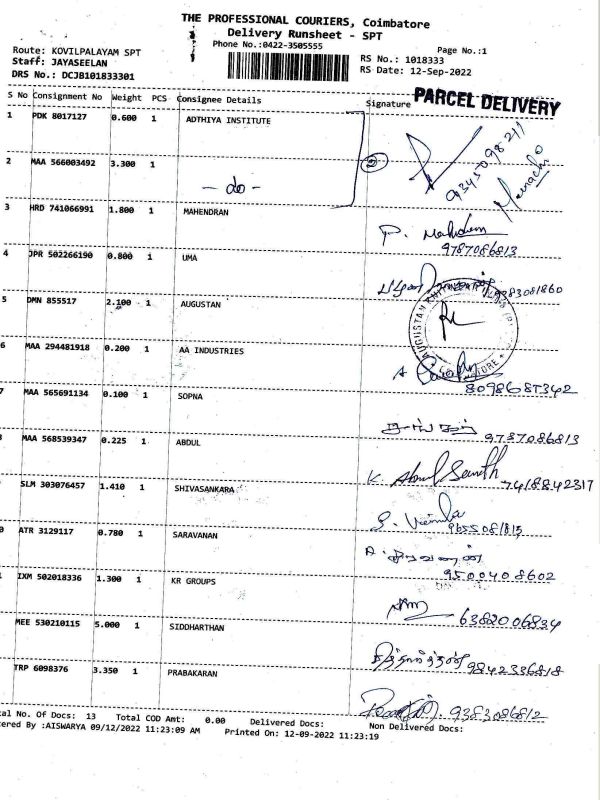 THE PROFESSIONAL COURIERS, Coimbatore
Delivery Runsheet - SPT
Phone No.:0422-3505555
Page No.:1
Route: KOVILPALAYAM SPT
Staff: JAYASEELAN
DRS No.: DCJB101833301
RS No.: 1018333
RS Date: 12-Sep-2022
S No Consignment No Weight PCS Consignee Details Signature PARCEL DELIVERY
1 PDK 8017127 0.600 1 ADTHIYA INSTITUTE
9345098211
2 MAA 566003492 3.300 1 - do - 2
3 HRD 741066991 1.800 1 MAHENDRAN P. Mahendran
9787086813
4 JPR 502266190 0.800 1 UMA
9383081860
5 DMN 855517 2.100 1 AUGUSTAN
6 MAA 294481918 0.200 1 AA INDUSTRIES
MAA 565691134 0.100 1 SOPNA
9787086813
MAA 568539347 0.225 1 ABDUL K. Abdul
7418842317
SLM 303076457 1.410 1 SHIVASANKARA
9655081815
ATR 3129117 0.780 1 SARAVANAN A. சரவணன்
9500408602
IXM 502018336 1.300 1 KR GROUPS
6382006834
MEE 530210115 5.000 1 SIDDHARTHAN சித்தார்த்தன் 9842336818
TRP 6098376 3.350 1 PRABAKARAN
9383086812
tal No. Of Docs: 13 Total COD Amt: 0.00 Delivered Docs: Non Delivered Docs:
tered By :AISWARYA 09/12/2022 11:23:09 AM Printed On: 12-09-2022 11:23:19